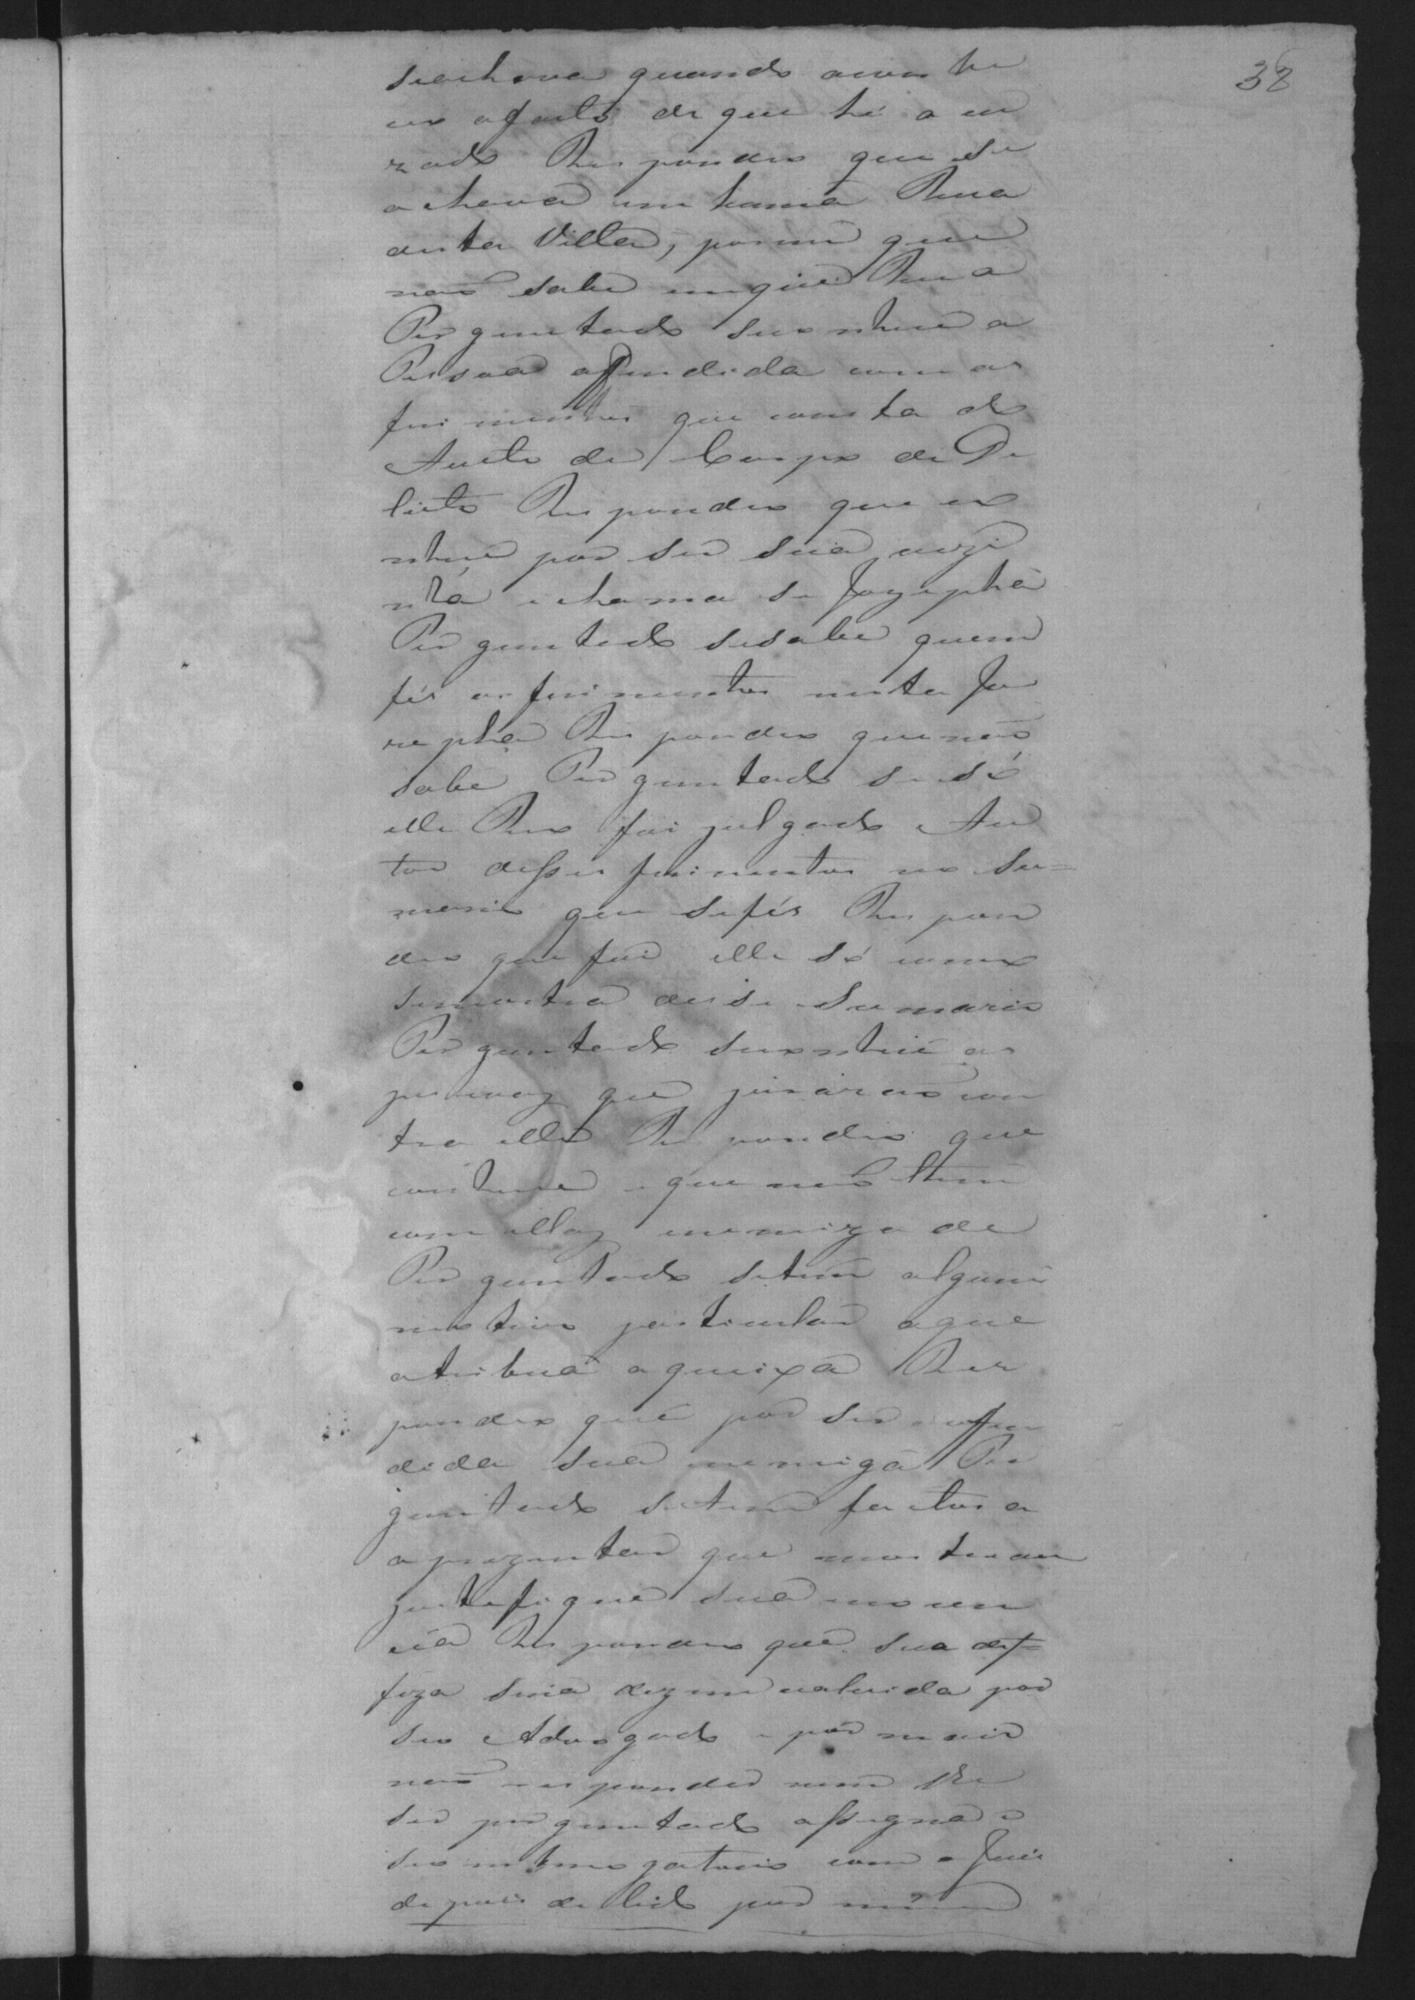 38
seachava quando acon te
ceo ofacto de que hé a cu
zado Respondeo que se
achava em huma Rua
desta Villa, porem que
naõ sabe emque Rua
Perguntado seconhece a
Pessoa offendida com os
firimentos que consta do
Aucto de Corpo de De
licto Respondeo que co
nhece por ser sua vezi
nha echama se Jozepha
Perguntado sesabe quem
fés os firimentos nesta Jo
zepha Respondeo quenaõ
sabe Perguntado se só
elle Reo foi julgado Au
tor desses firimentos no Su=
mario que sefés Respon
deo que foi elle só como
semostra desse Sumario
Perguntado seconhece as
pessoaz que juraraõ con
tra elle Respondeo que
conhece e que naõ tem
com ellaz inemizade
Perguntado setem algum
motivo particular aque
atribua aqueixa Res
pondeo que por ser a offen
dida sua inemiga Per
guntado setem factos a
aprezentar que mostre ou
justefique sua inocen
cia Respondeo que sua def=
feza seria dezenvolvida por
seo Advogado e por mais
naõ responder nem lhe
ser perguntado assigna o
seo interrogatorio com o Juis
depois de lido por mim